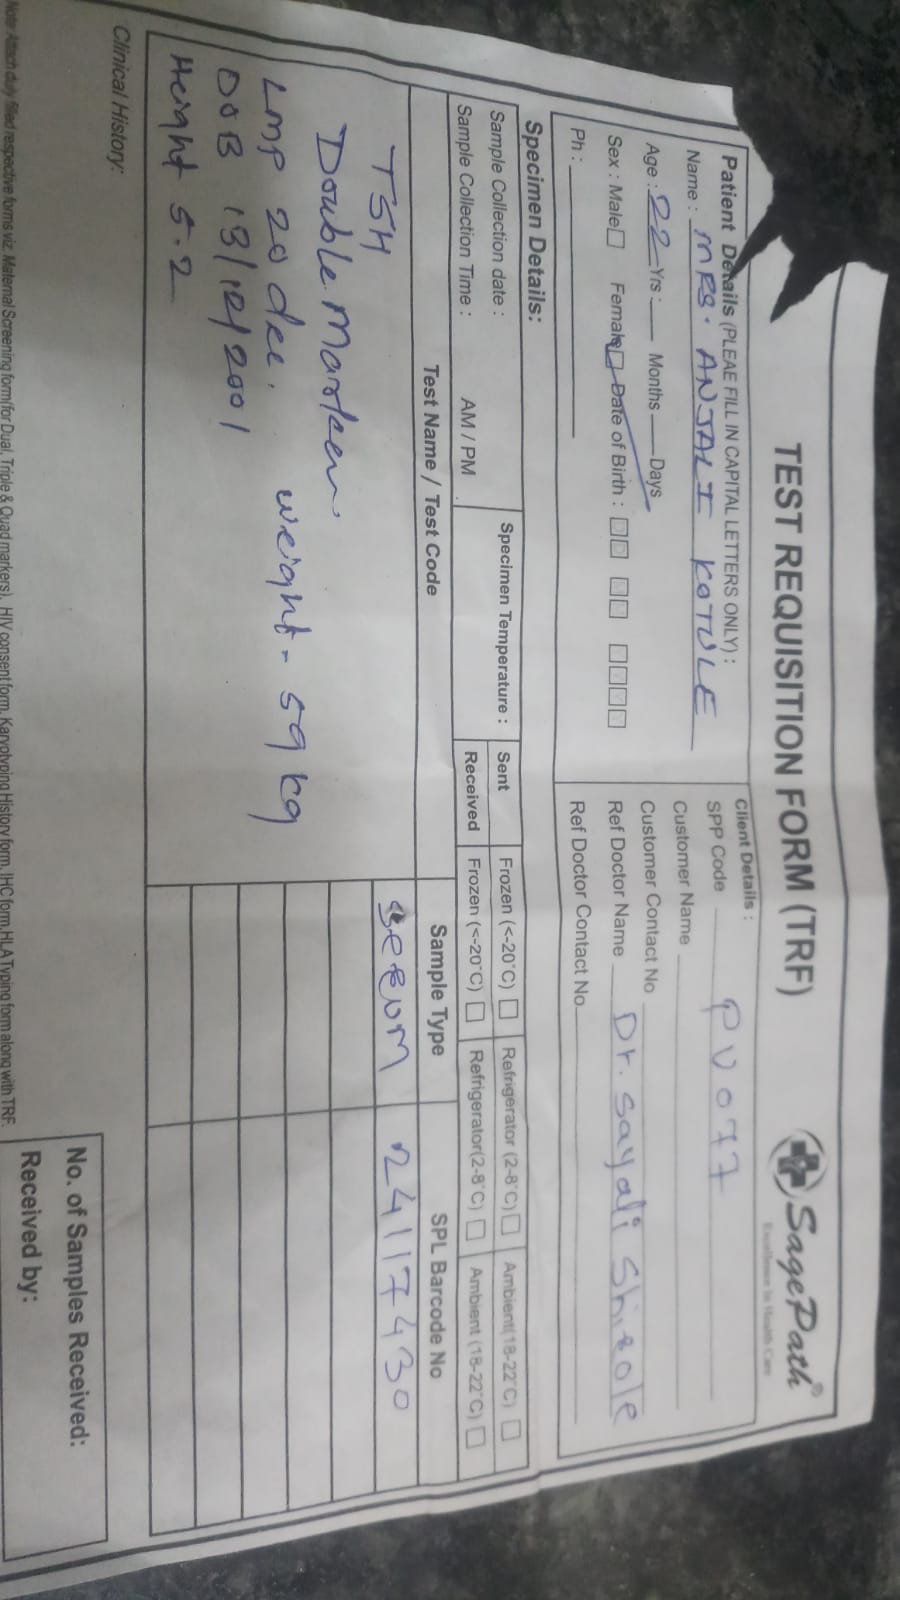 TEST REQUISITION FORM (TRF)
SagePath®
Excellence in Health Care
Patient Details (PLEAE FILL IN CAPITAL LETTERS ONLY) :
Name : MRS. ANJALI KOTULE
Age : 22 Yrs : Months Days
Sex : Male Female Date of Birth :
Ph :
Client Details :
SPP Code PV077
Customer Name
Customer Contact No
Ref Doctor Name Dr. Sayali Shirole
Ref Doctor Contact No
Specimen Details:
Sample Collection date :
Sample Collection Time : AM / PM
Specimen Temperature :
Sent Frozen (<-20°C) Refrigerator (2-8°C) Ambient(18-22°C)
Received Frozen (<-20°C) Refrigerator(2-8°C) Ambient (18-22°C)
Test Name / Test Code Sample Type SPL Barcode No
TSH serum 24117430
Double Marker
LMP 20 dec. weight - 59 kg
DOB 13/12/2001
Height 5.2
Clinical History:
No. of Samples Received:
Received by:
Note: Attach duly filled respective forms viz. Maternal Screening form(for Dual, Triple & Quad markers), HIV consent form, Karyotyping History form, IHC form, HLA Typing form along with TRF.